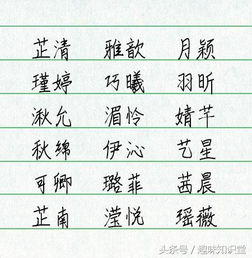 芷清 雅歆 月颖
瑾婷 巧曦 羽昕
湫允 湄怜 婧芊
秋绵 伊沁 艺星
可卿 璐菲 茜晨
芷南 滢悦 瑶薇
头条号 / 趣味知识堂